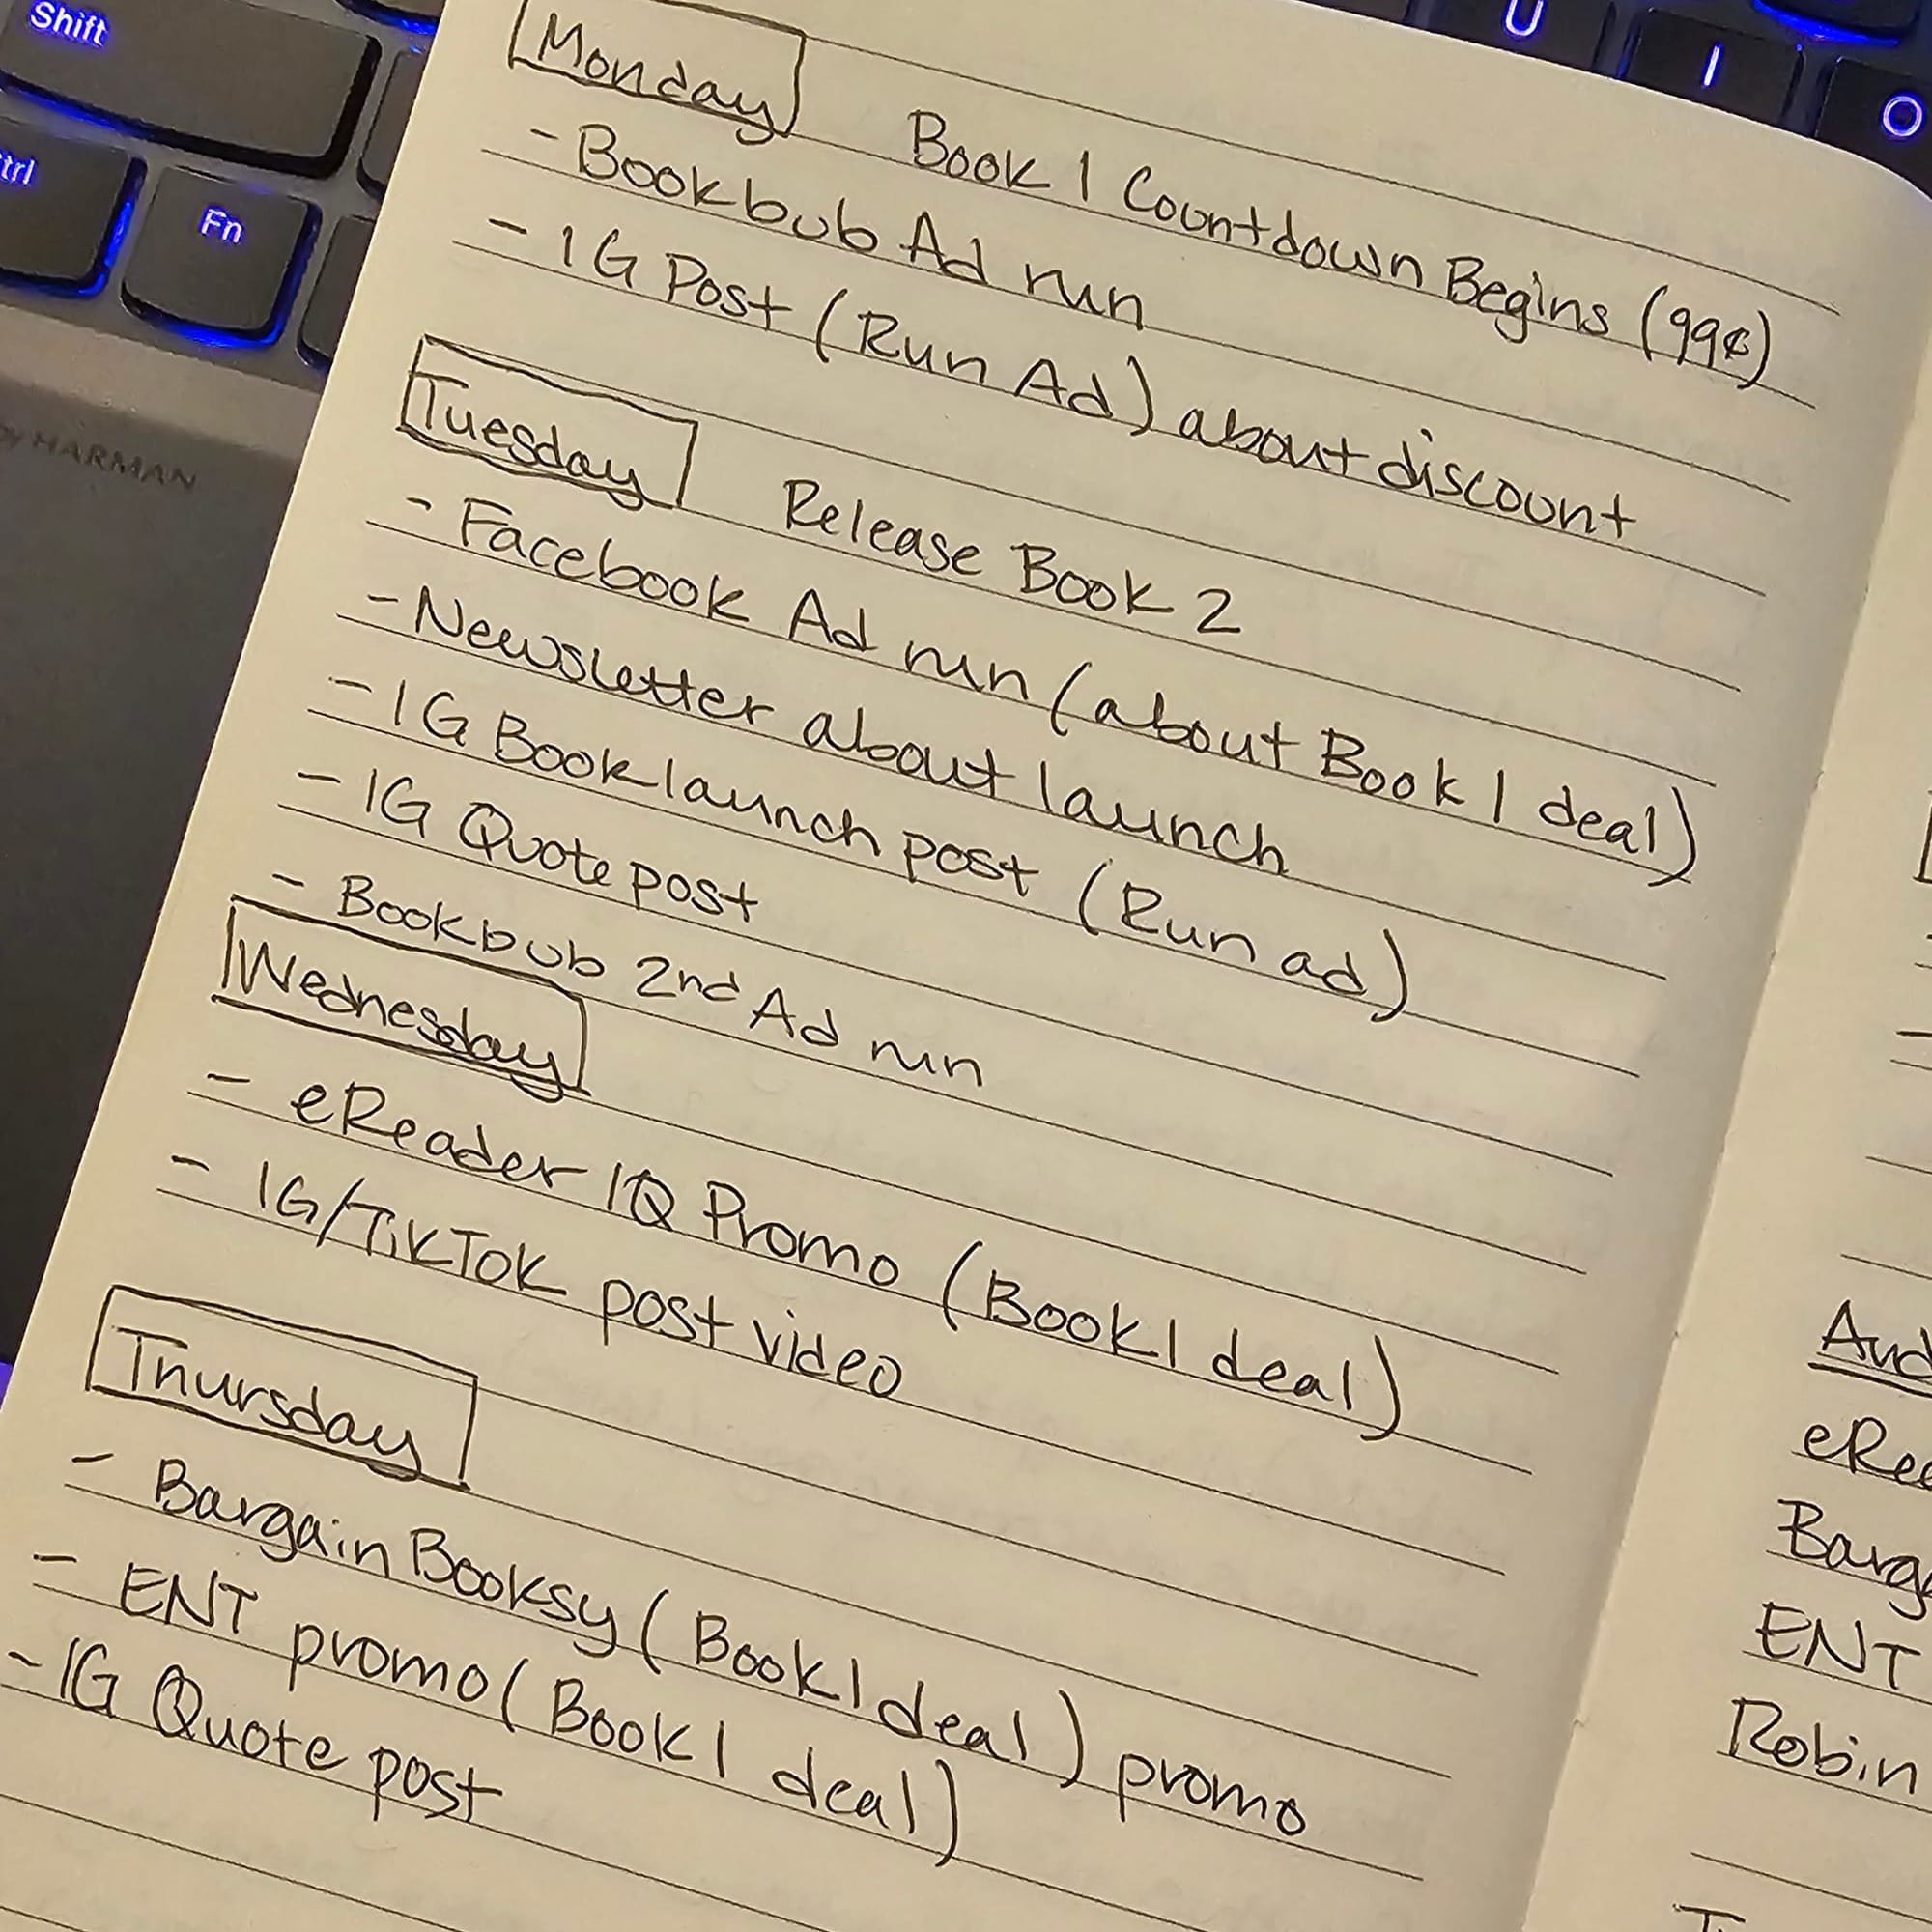 Shift
U
I
O
trl
Fn
by HARMAN
Monday Book 1 Countdown Begins (99¢)
- Bookbub Ad run
- IG Post (Run Ad) about discount
Tuesday Release Book 2
- Facebook Ad run (about Book 1 deal)
- Newsletter about launch
- IG Book launch post (Run ad)
- IG Quote post
- Bookbub 2nd Ad run
Wednesday
- eReader IQ Promo (Book 1 deal)
- IG/TikTok post video
Thursday
- Bargain Booksy (Book 1 deal) promo
- ENT promo (Book 1 deal)
- IG Quote post
Aud
eRea
Barga
ENT
Robin